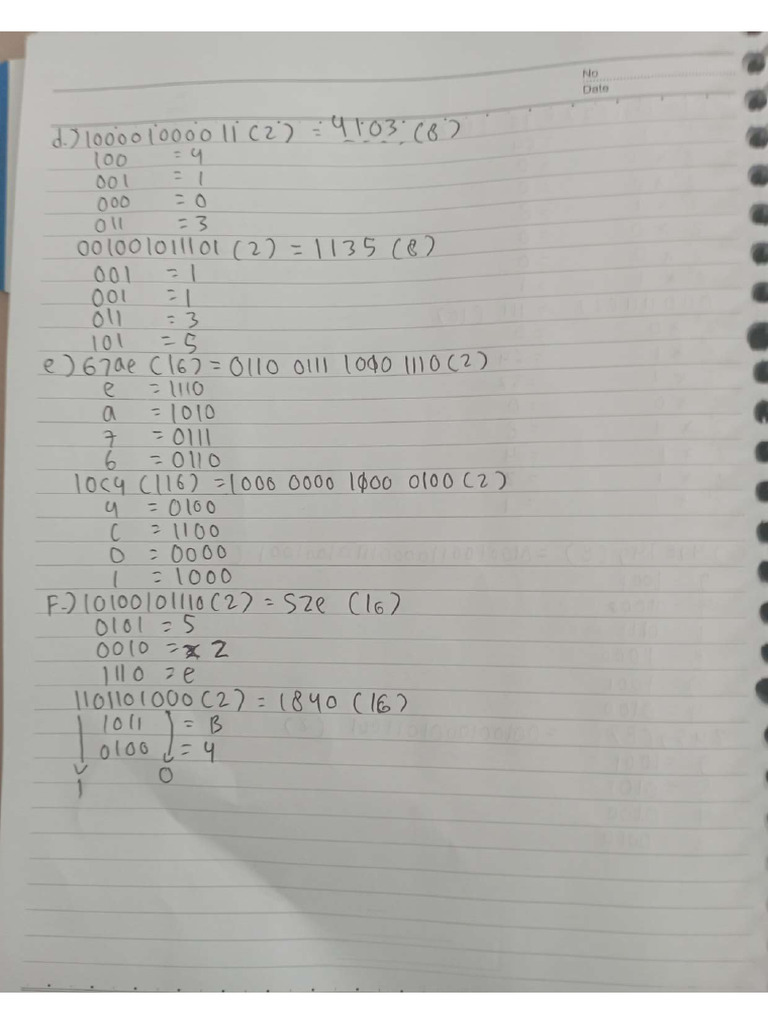 No
Date
d.) 100001000011 (2) = 4103 (8)
100 = 4
001 = 1
000 = 0
011 = 3
001001011101 (2) = 1135 (8)
001 = 1
001 = 1
011 = 3
101 = 5
e) 67ae (16) = 0110 0111 1010 1110 (2)
e = 1110
a = 1010
7 = 0111
6 = 0110
10c4 (116) = 1000 0000 1100 0100 (2)
4 = 0100
C = 1100
0 = 0000
1 = 1000
F.) 10100101110 (2) = 52e (16)
0101 = 5
0010 = 2
1110 = e
1101101000 (2) = 1B40 (16)
1011 = B
0100 = 4
1 0